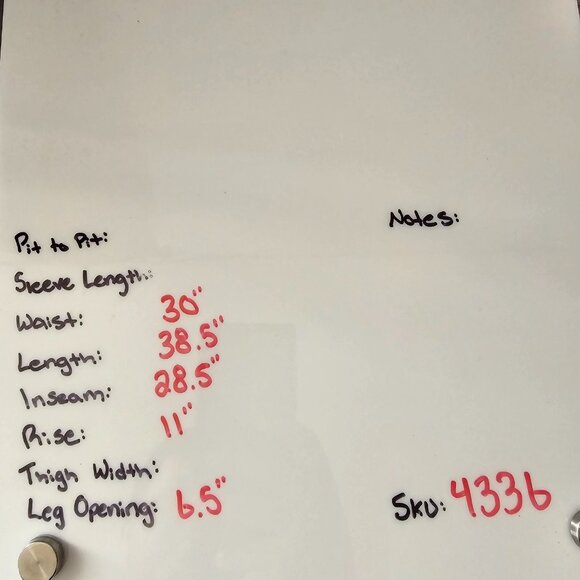 Notes:
Pit to Pit:
Sleeve Length:
Waist: 30"
Length: 38.5"
Inseam: 28.5"
Rise: 11"
Thigh Width:
Leg Opening: 6.5"
SKU: 4336